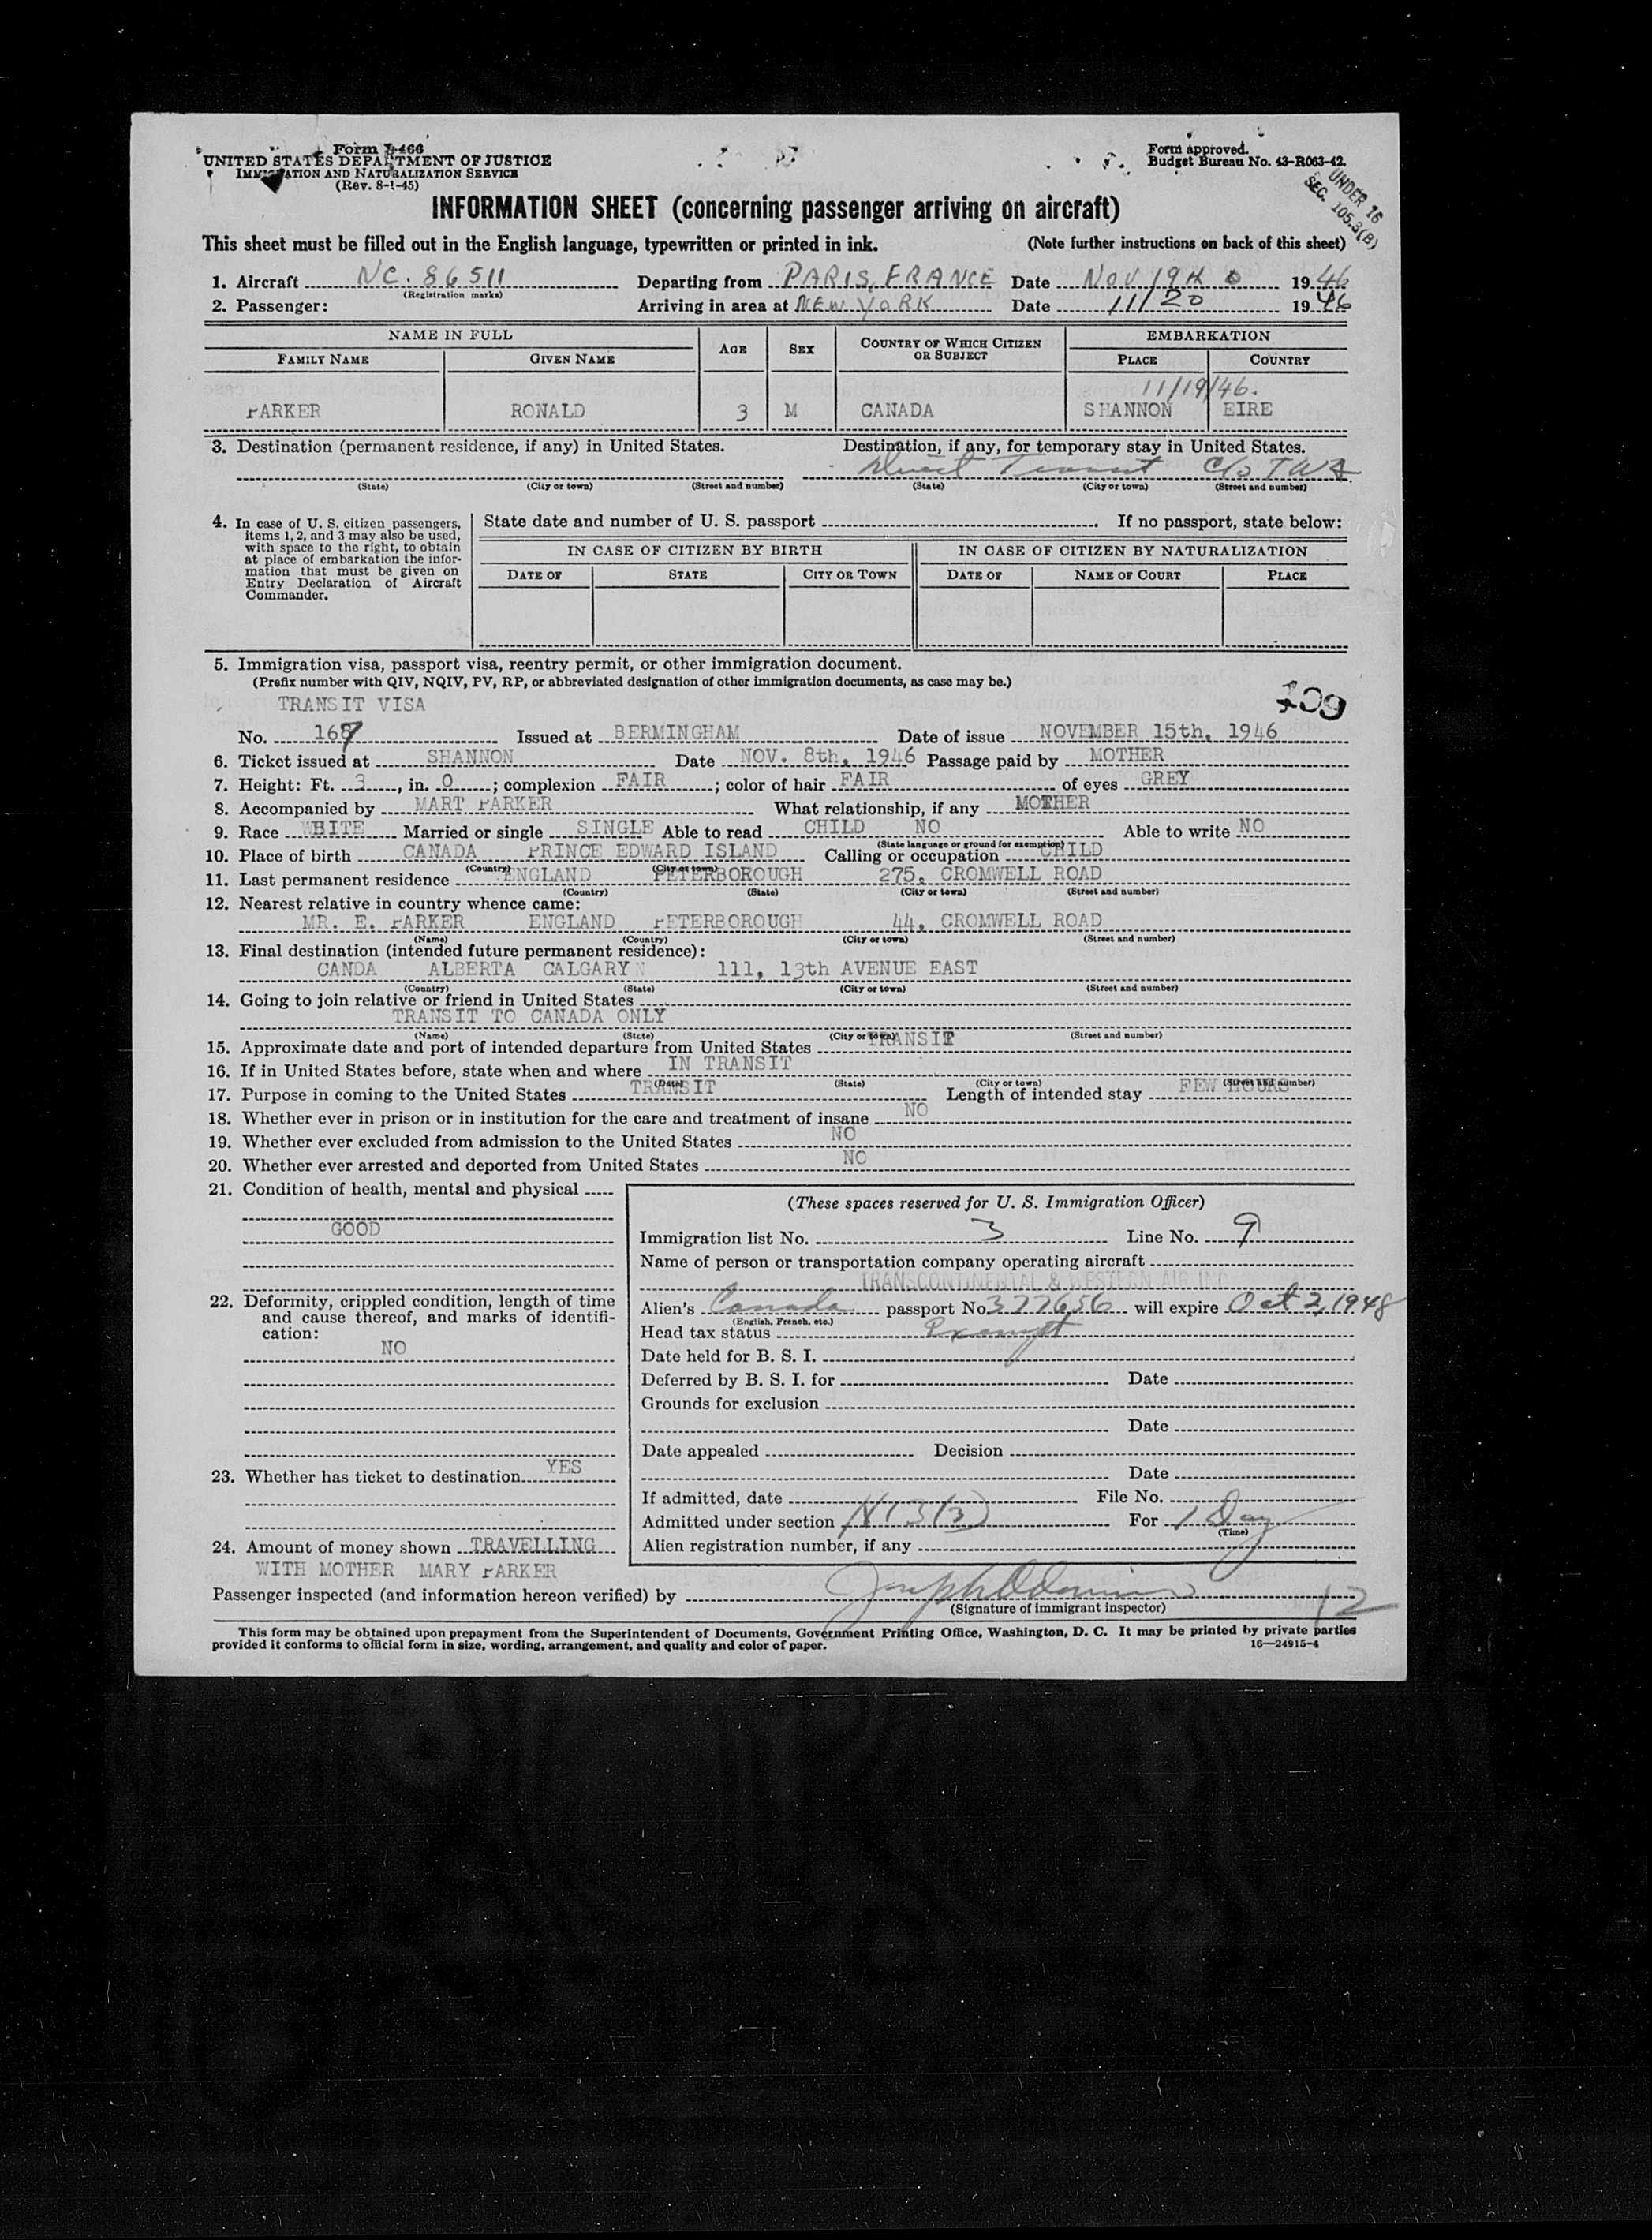 Form I-466
UNITED STATES DEPARTMENT OF JUSTICE
IMMIGRATION AND NATURALIZATION SERVICE
(Rev. 8-1-45)
Form approved.
Budget Bureau No. 43-R063-42.
UNDER 16
SEC. 105.3(B)
INFORMATION SHEET (concerning passenger arriving on aircraft)
This sheet must be filled out in the English language, typewritten or printed in ink. (Note further instructions on back of this sheet)
1. Aircraft NC. 86511 Departing from PARIS, FRANCE Date NOV 19th 1946
(Registration marks)
2. Passenger: Arriving in area at NEW YORK Date 11/20 1946
NAME IN FULL AGE SEX COUNTRY OF WHICH CITIZEN OR SUBJECT EMBARKATION
FAMILY NAME GIVEN NAME PLACE COUNTRY
11/19/46.
PARKER RONALD 3 M CANADA SHANNON EIRE
3. Destination (permanent residence, if any) in United States. Destination, if any, for temporary stay in United States.
Direct Transit C/o TWA
(State) (City or town) (Street and number) (State) (City or town) (Street and number)
4. In case of U. S. citizen passengers, items 1, 2, and 3 may also be used, with space to the right, to obtain at place of embarkation the information that must be given on Entry Declaration of Aircraft Commander.
State date and number of U. S. passport . If no passport, state below:
IN CASE OF CITIZEN BY BIRTH IN CASE OF CITIZEN BY NATURALIZATION
DATE OF STATE CITY OR TOWN DATE OF NAME OF COURT PLACE
5. Immigration visa, passport visa, reentry permit, or other immigration document.
(Prefix number with QIV, NQIV, PV, RP, or abbreviated designation of other immigration documents, as case may be.)
TRANSIT VISA 109
No. 1687 Issued at BERMINGHAM Date of issue NOVEMBER 15th, 1946
6. Ticket issued at SHANNON Date NOV. 8th, 1946 Passage paid by MOTHER
7. Height: Ft. 3, in. 0; complexion FAIR; color of hair FAIR of eyes GREY
8. Accompanied by MART PARKER What relationship, if any MOTHER
9. Race WHITE Married or single SINGLE Able to read CHILD NO Able to write NO
(State language or ground for exemption)
10. Place of birth CANADA PRINCE EDWARD ISLAND Calling or occupation CHILD
(Country) (City or town)
11. Last permanent residence ENGLAND PETERBOROUGH 275, CROMWELL ROAD
(Country) (State) (City or town) (Street and number)
12. Nearest relative in country whence came:
MR. E. PARKER ENGLAND PETERBOROUGH 44, CROMWELL ROAD
(Name) (Country) (City or town) (Street and number)
13. Final destination (intended future permanent residence):
CANDA ALBERTA CALGARY 111, 13th AVENUE EAST
(Country) (State) (City or town) (Street and number)
14. Going to join relative or friend in United States
TRANSIT TO CANADA ONLY
(Name) (State) (City or town) (Street and number)
15. Approximate date and port of intended departure from United States TRANSIT
16. If in United States before, state when and where IN TRANSIT
(Date) (State) (City or town) (Street and number)
17. Purpose in coming to the United States TRANSIT Length of intended stay FEW HOURS
18. Whether ever in prison or in institution for the care and treatment of insane NO
19. Whether ever excluded from admission to the United States NO
20. Whether ever arrested and deported from United States NO
21. Condition of health, mental and physical
GOOD
22. Deformity, crippled condition, length of time and cause thereof, and marks of identification:
NO
23. Whether has ticket to destination YES
24. Amount of money shown TRAVELLING
WITH MOTHER MARY PARKER
(These spaces reserved for U. S. Immigration Officer)
Immigration list No. 3 Line No. 9
Name of person or transportation company operating aircraft
TRANSCONTINENTAL & WESTERN AIR INC
Alien's Canada passport No. 377656 will expire Oct 2, 1948
(English, French, etc.)
Head tax status Exempt
Date held for B. S. I.
Deferred by B. S. I. for Date
Grounds for exclusion
Date
Date appealed Decision
Date
If admitted, date File No.
Admitted under section 3(3) For 1 Day
(Time)
Alien registration number, if any
Passenger inspected (and information hereon verified) by
(Signature of immigrant inspector) 12
This form may be obtained upon prepayment from the Superintendent of Documents, Government Printing Office, Washington, D. C. It may be printed by private parties
provided it conforms to official form in size, wording, arrangement, and quality and color of paper. 16—24915-4